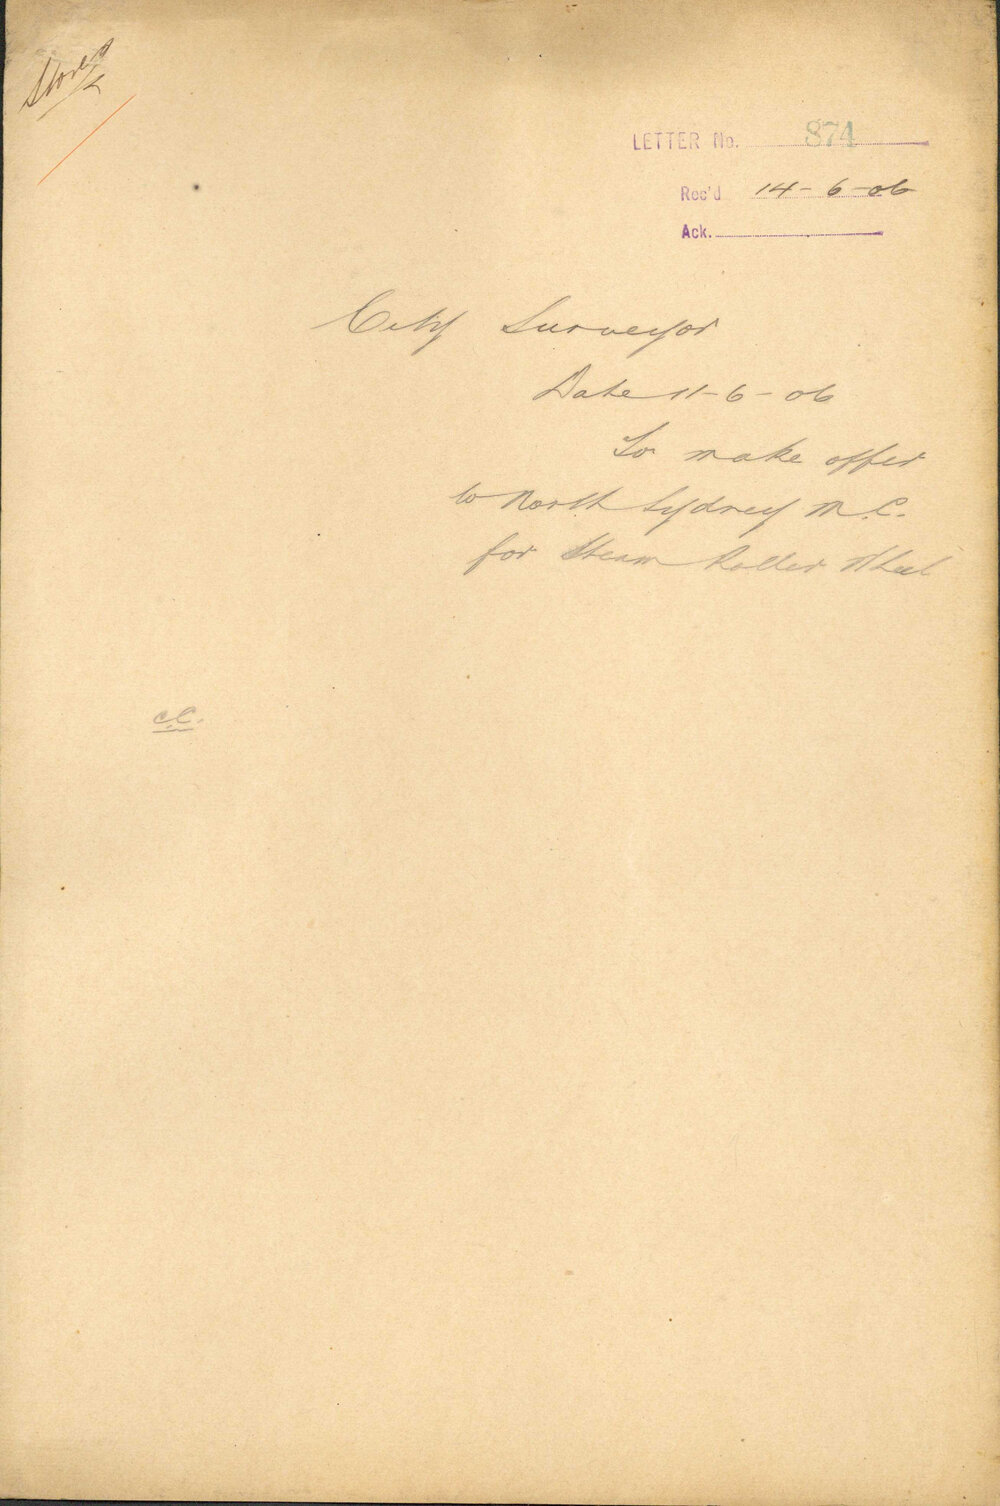 LETTER No. 874
Rec'd 14-6-06
Ack.
City Surveyor
Date 11-6-06
To make offer
to North Sydney M.C.
for Steam Roller Wheel
C.C.